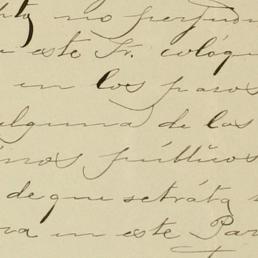 no perjudi
esté Sr. colóqu
en los paros
alguna de las
inos públicos
de que se tráta
ra en este Par